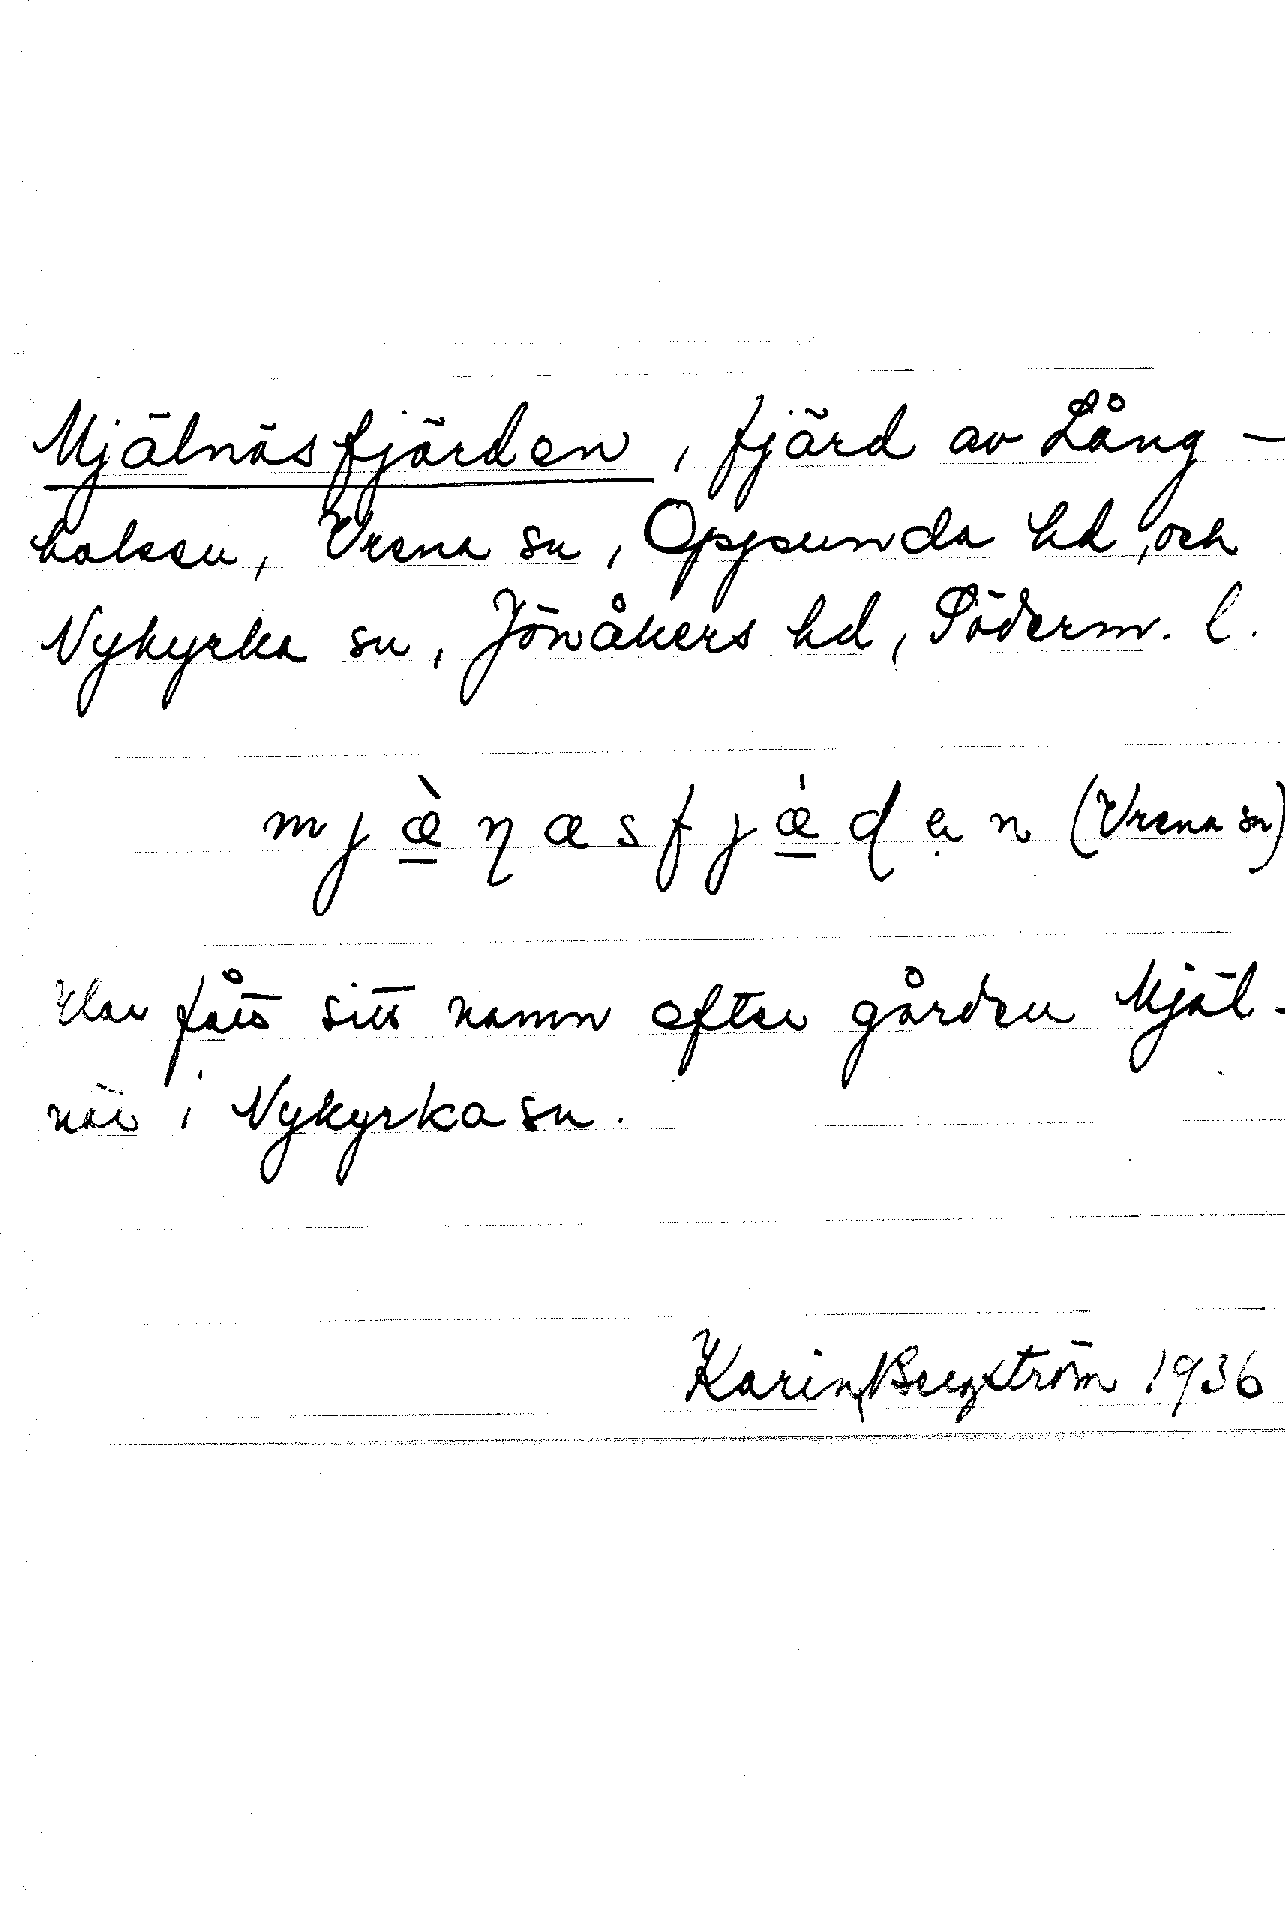 Mjälnäsfjärden, fjärd av Lång-
halsen, Vrena sn, Oppunda hd, och
Nykyrka sn, Jönåkers hd, Söderm. l.
mjæ̀ṇæsfjǽḍen (Vrena sn)
Har fått sitt namn efter gården Mjäl-
näs i Nykyrka sn.
Karin Bergström 1936